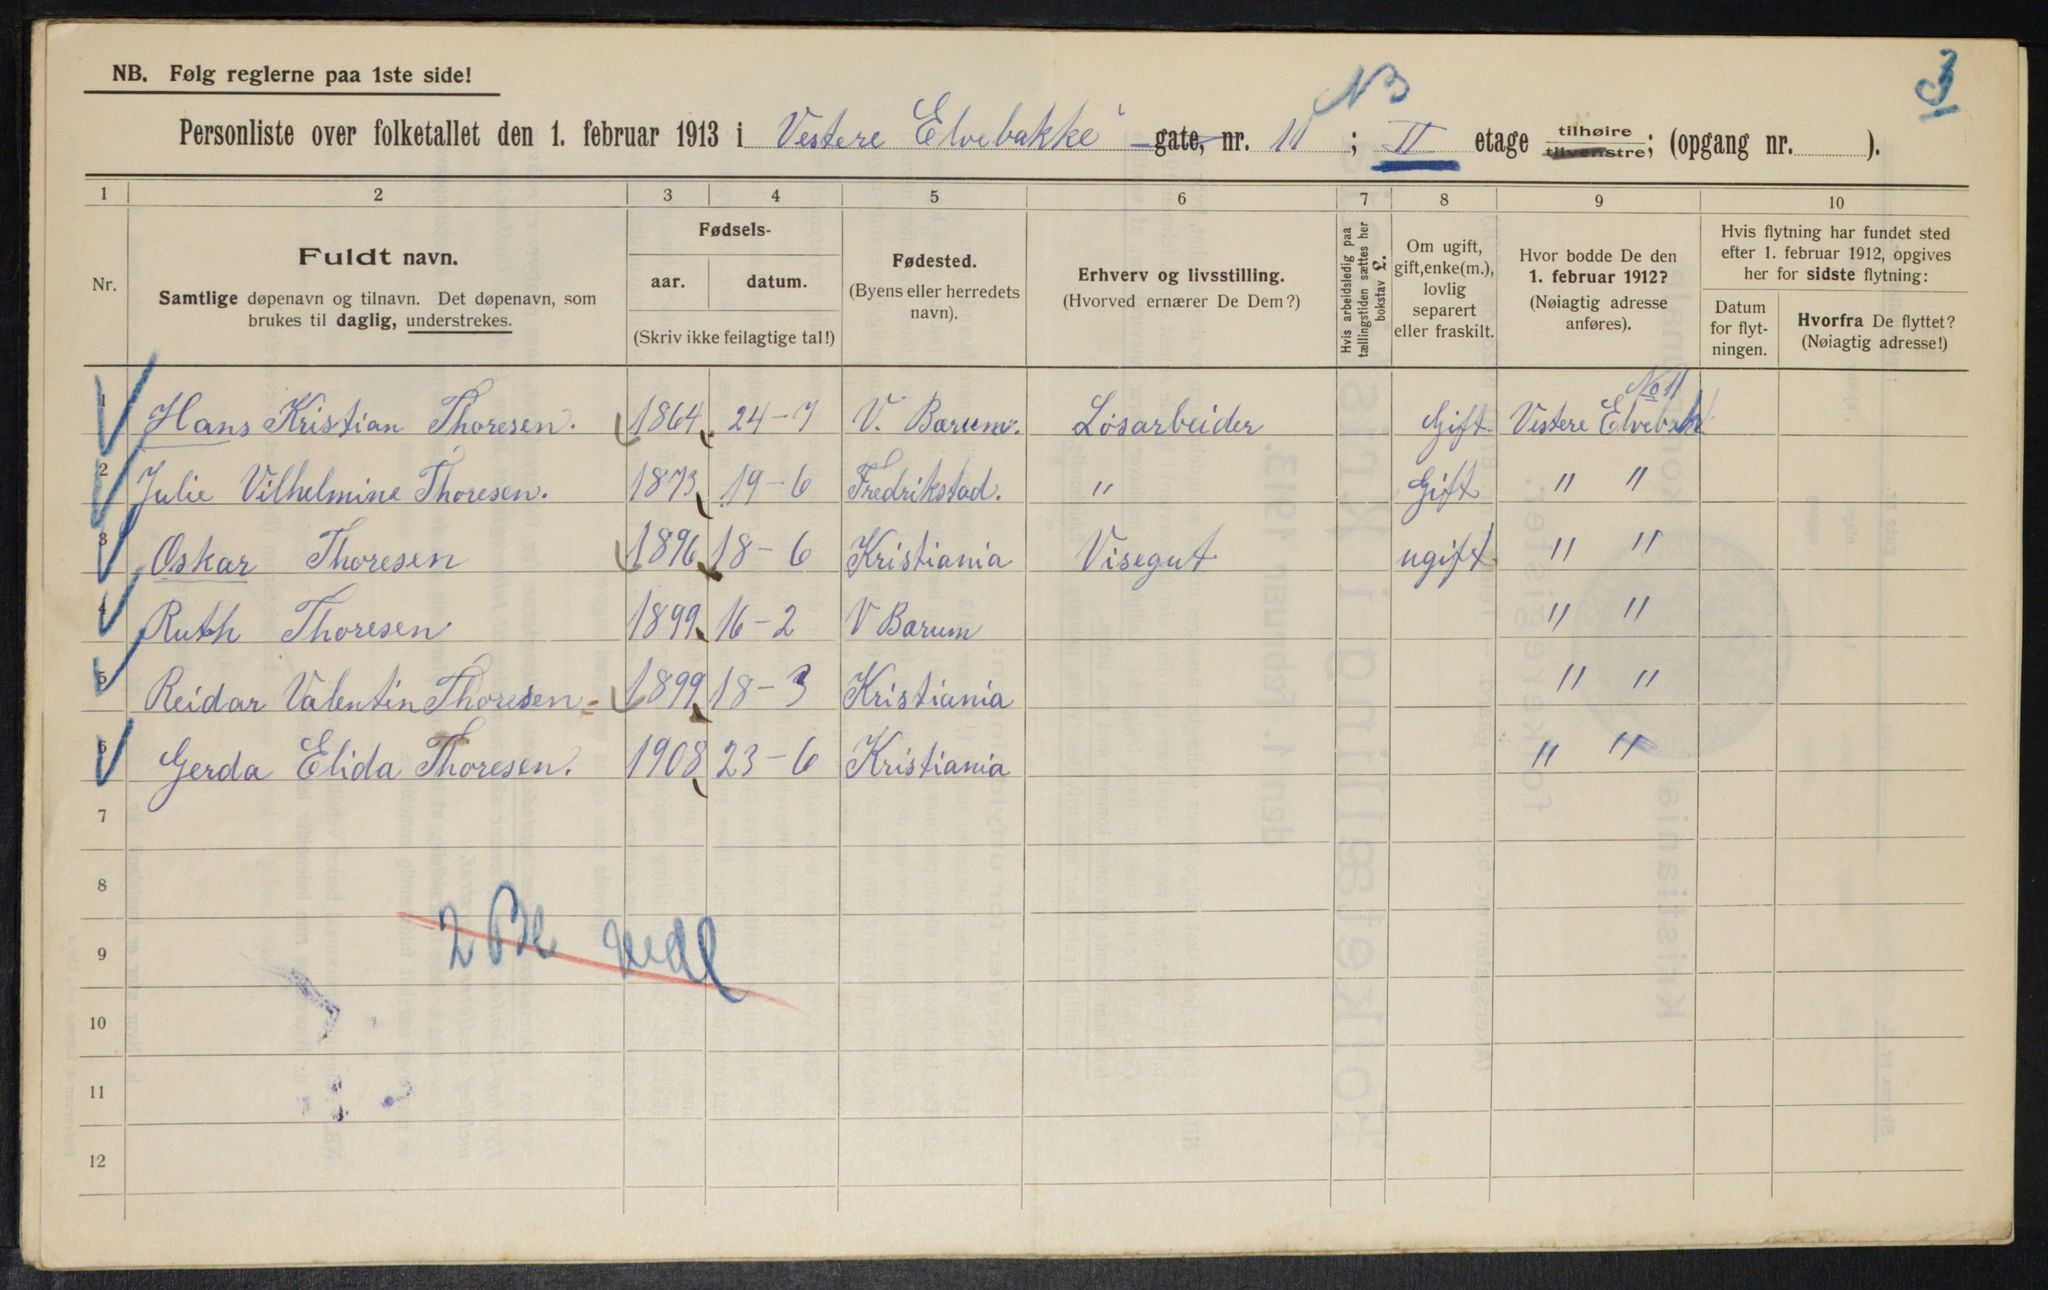 NB. Følg reglerne paa 1ste side!
NB
3
Personliste over folketallet den 1. februar 1913 i Vestere Elvebakke gate, nr. 11 ; II etage tilhøire tilvenstre; (opgang nr. ).
1 2 3 4 5 6 7 8 9 10
Nr.
Fuldt navn.
Samtlige døpenavn og tilnavn. Det døpenavn, som
brukes til daglig, understrekes.
Fødsels-
aar. datum.
(Skriv ikke feilagtige tal!)
Fødested.
(Byens eller herredets
navn).
Erhverv og livsstilling.
(Hvorved ernærer De Dem?)
Hvis arbeidsledig paa
tællingstiden sættes her
bokstav L.
Om ugift,
gift, enke(m.),
lovlig
separert
eller fraskilt.
Hvor bodde De den
1. februar 1912?
(Nøiagtig adresse
anføres).
Hvis flytning har fundet sted
efter 1. februar 1912, opgives
her for sidste flytning:
Datum
for flyt-
ningen.
Hvorfra De flyttet?
(Nøiagtig adresse!)
No 11
1 Hans Kristian Thoresen. 1864 24-7 V. Barum. Løsarbeider Gift Vestere Elvebak
2 Julie Vilhelmine Thoresen. 1873 19-6 Fredrikstad. " Gift " "
3 Oskar Thoresen 1896 18-6 Kristiania Visegut ugift " "
4 Ruth Thoresen 1899 16-2 V Barum " "
5 Reidar Valentin Thoresen 1899 18-3 Kristiania " "
6 Gerda Elida Thoresen. 1908 23-6 Kristiania " "
7
8
9
2 Bl vedl
10
11
12